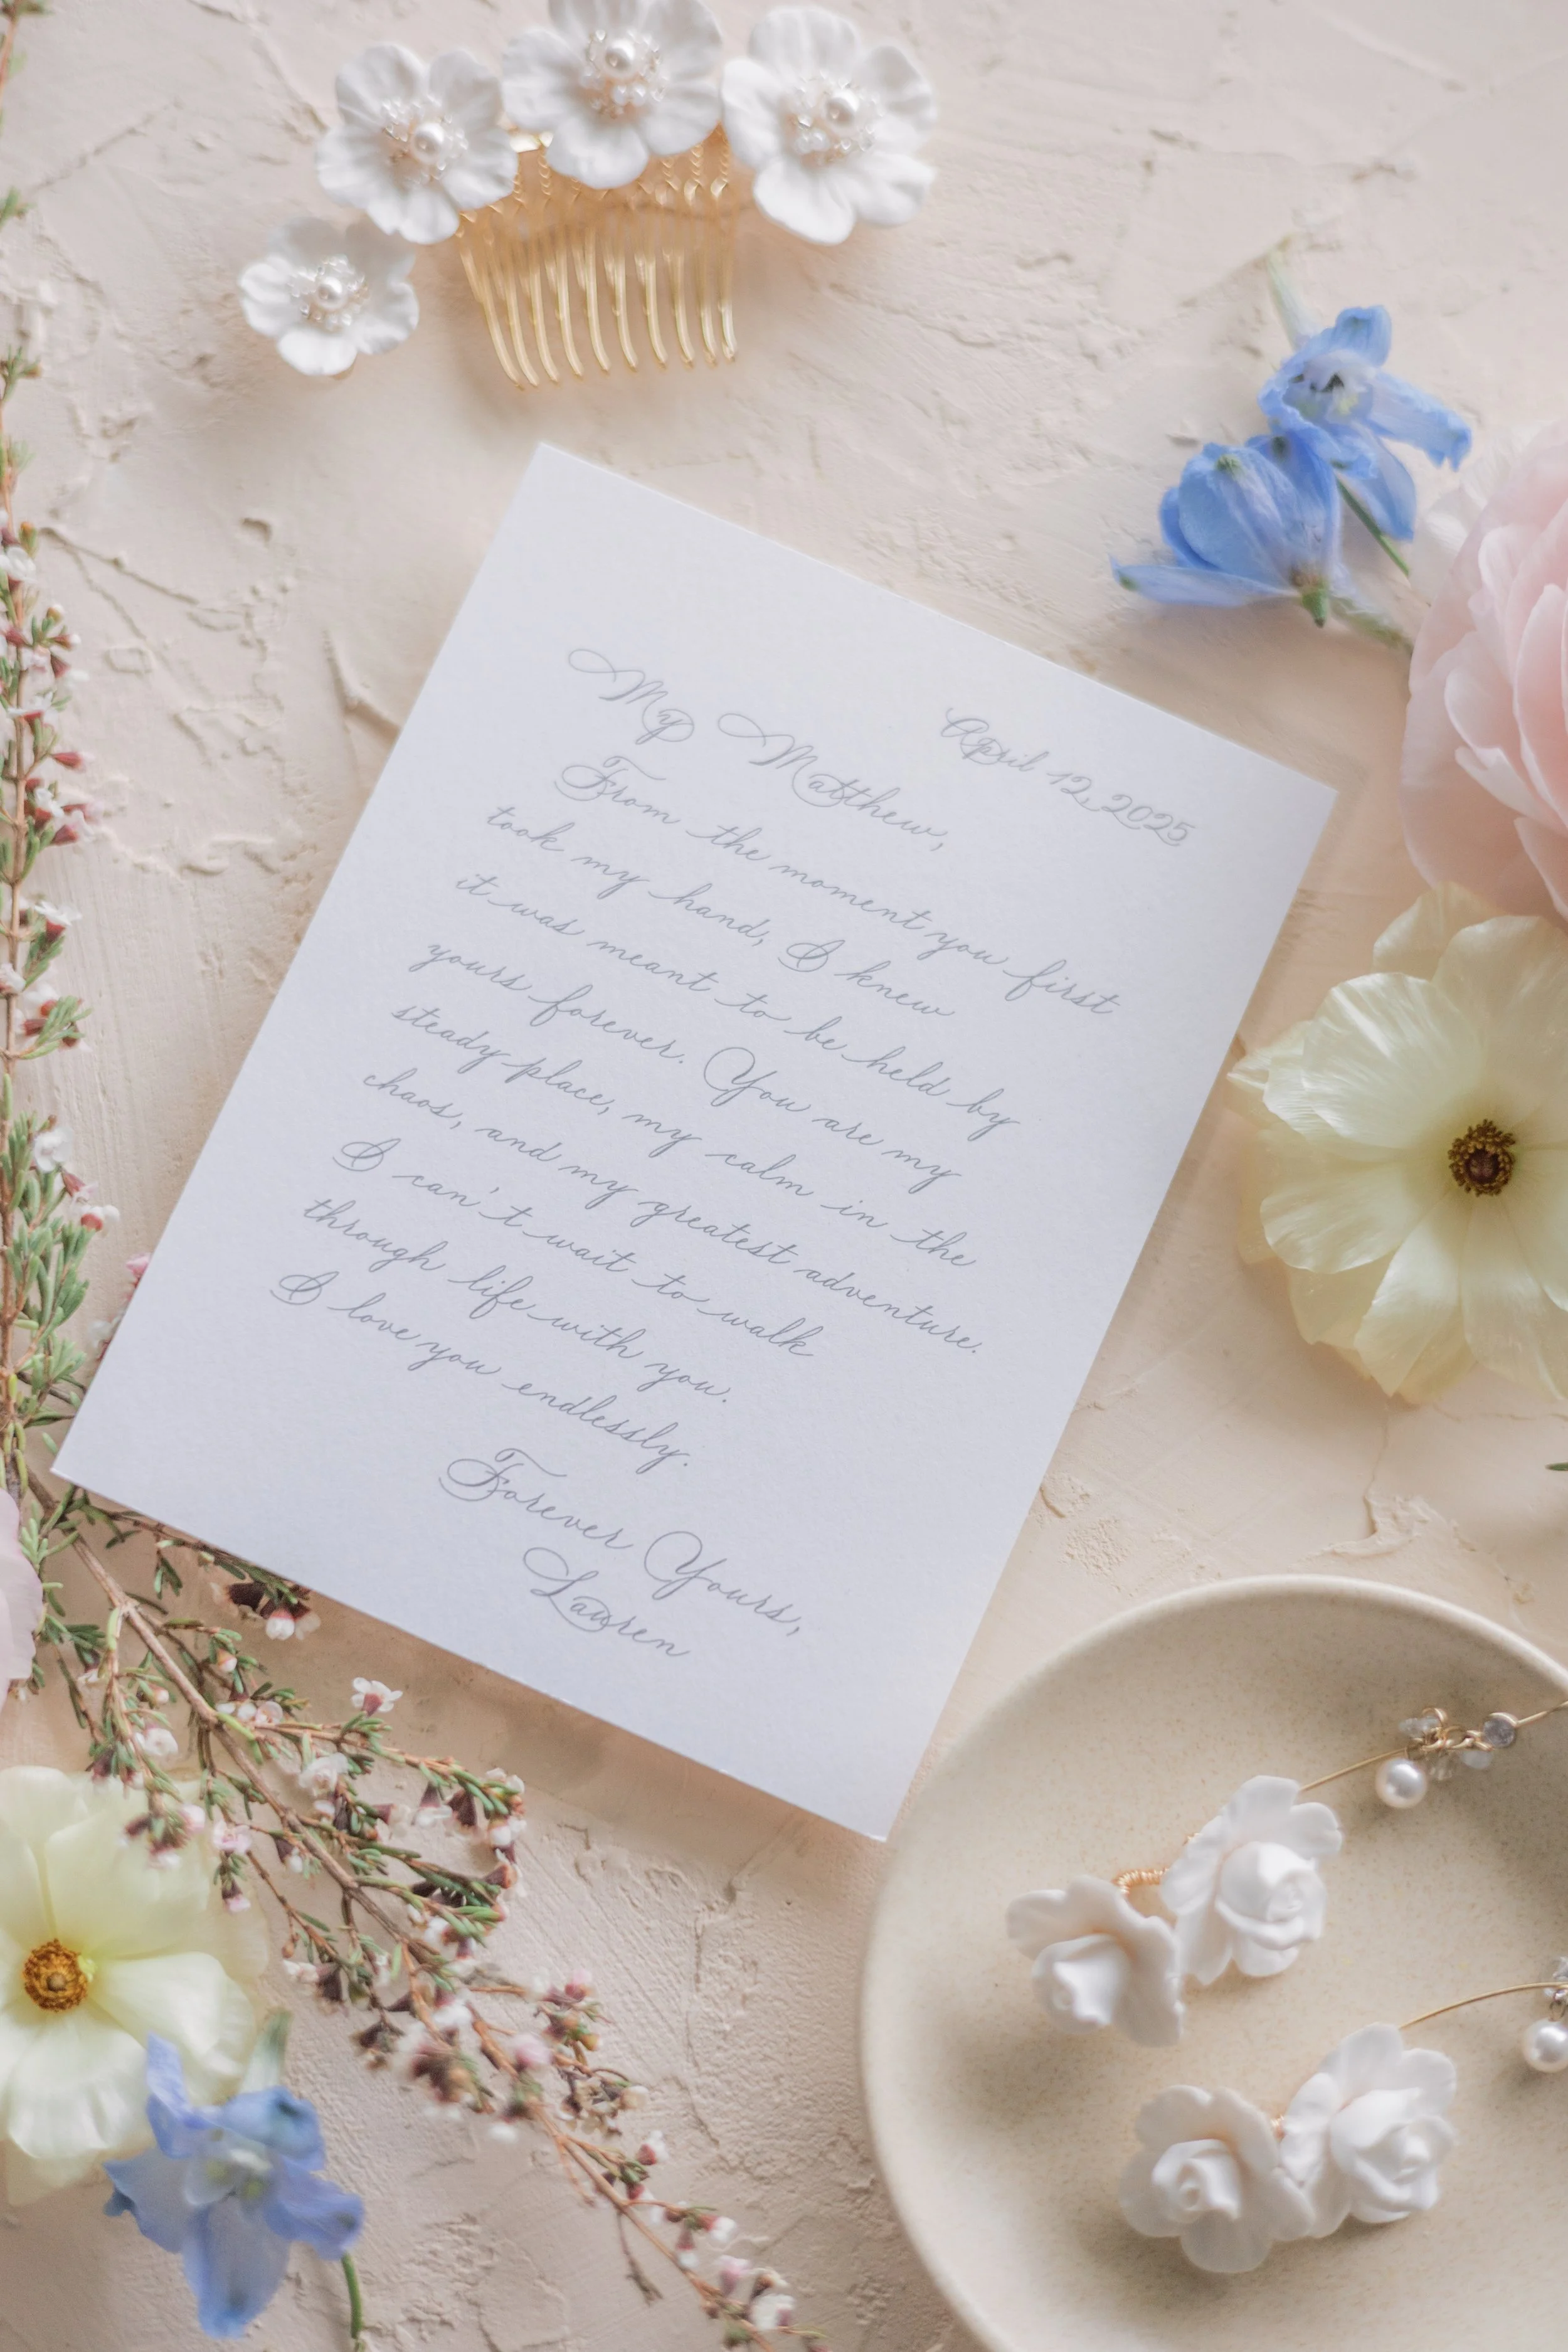 April 12, 2025
My Matthew,
From the moment you first
took my hand, I knew
it was meant to be held by
yours forever. You are my
steady place, my calm in the
chaos, and my greatest adventure.
I can't wait to walk
through life with you.
I love you endlessly.
Forever Yours,
Lauren